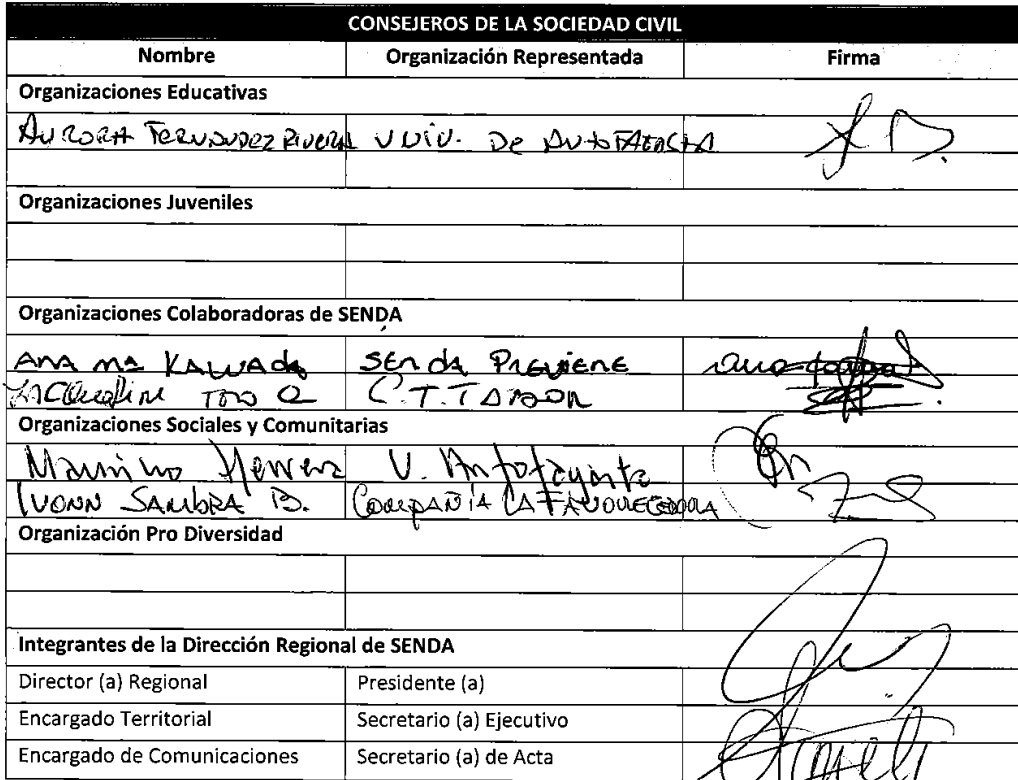 CONSEJEROS DE LA SOCIEDAD CIVIL
Nombre Organización Representada Firma
Organizaciones Educativas
Aurora Fernandez Rivera Univ. De Antofagasta
Organizaciones Juveniles
Organizaciones Colaboradoras de SENDA
Ana Mª Senda Previene
Jacqueline Toro C.T.
Organizaciones Sociales y Comunitarias
Herrera U. Antofagasta
Ivonn Sambra B. Compañía La
Organización Pro Diversidad
Integrantes de la Dirección Regional de SENDA
Director (a) Regional Presidente (a)
Encargado Territorial Secretario (a) Ejecutivo
Encargado de Comunicaciones Secretario (a) de Acta